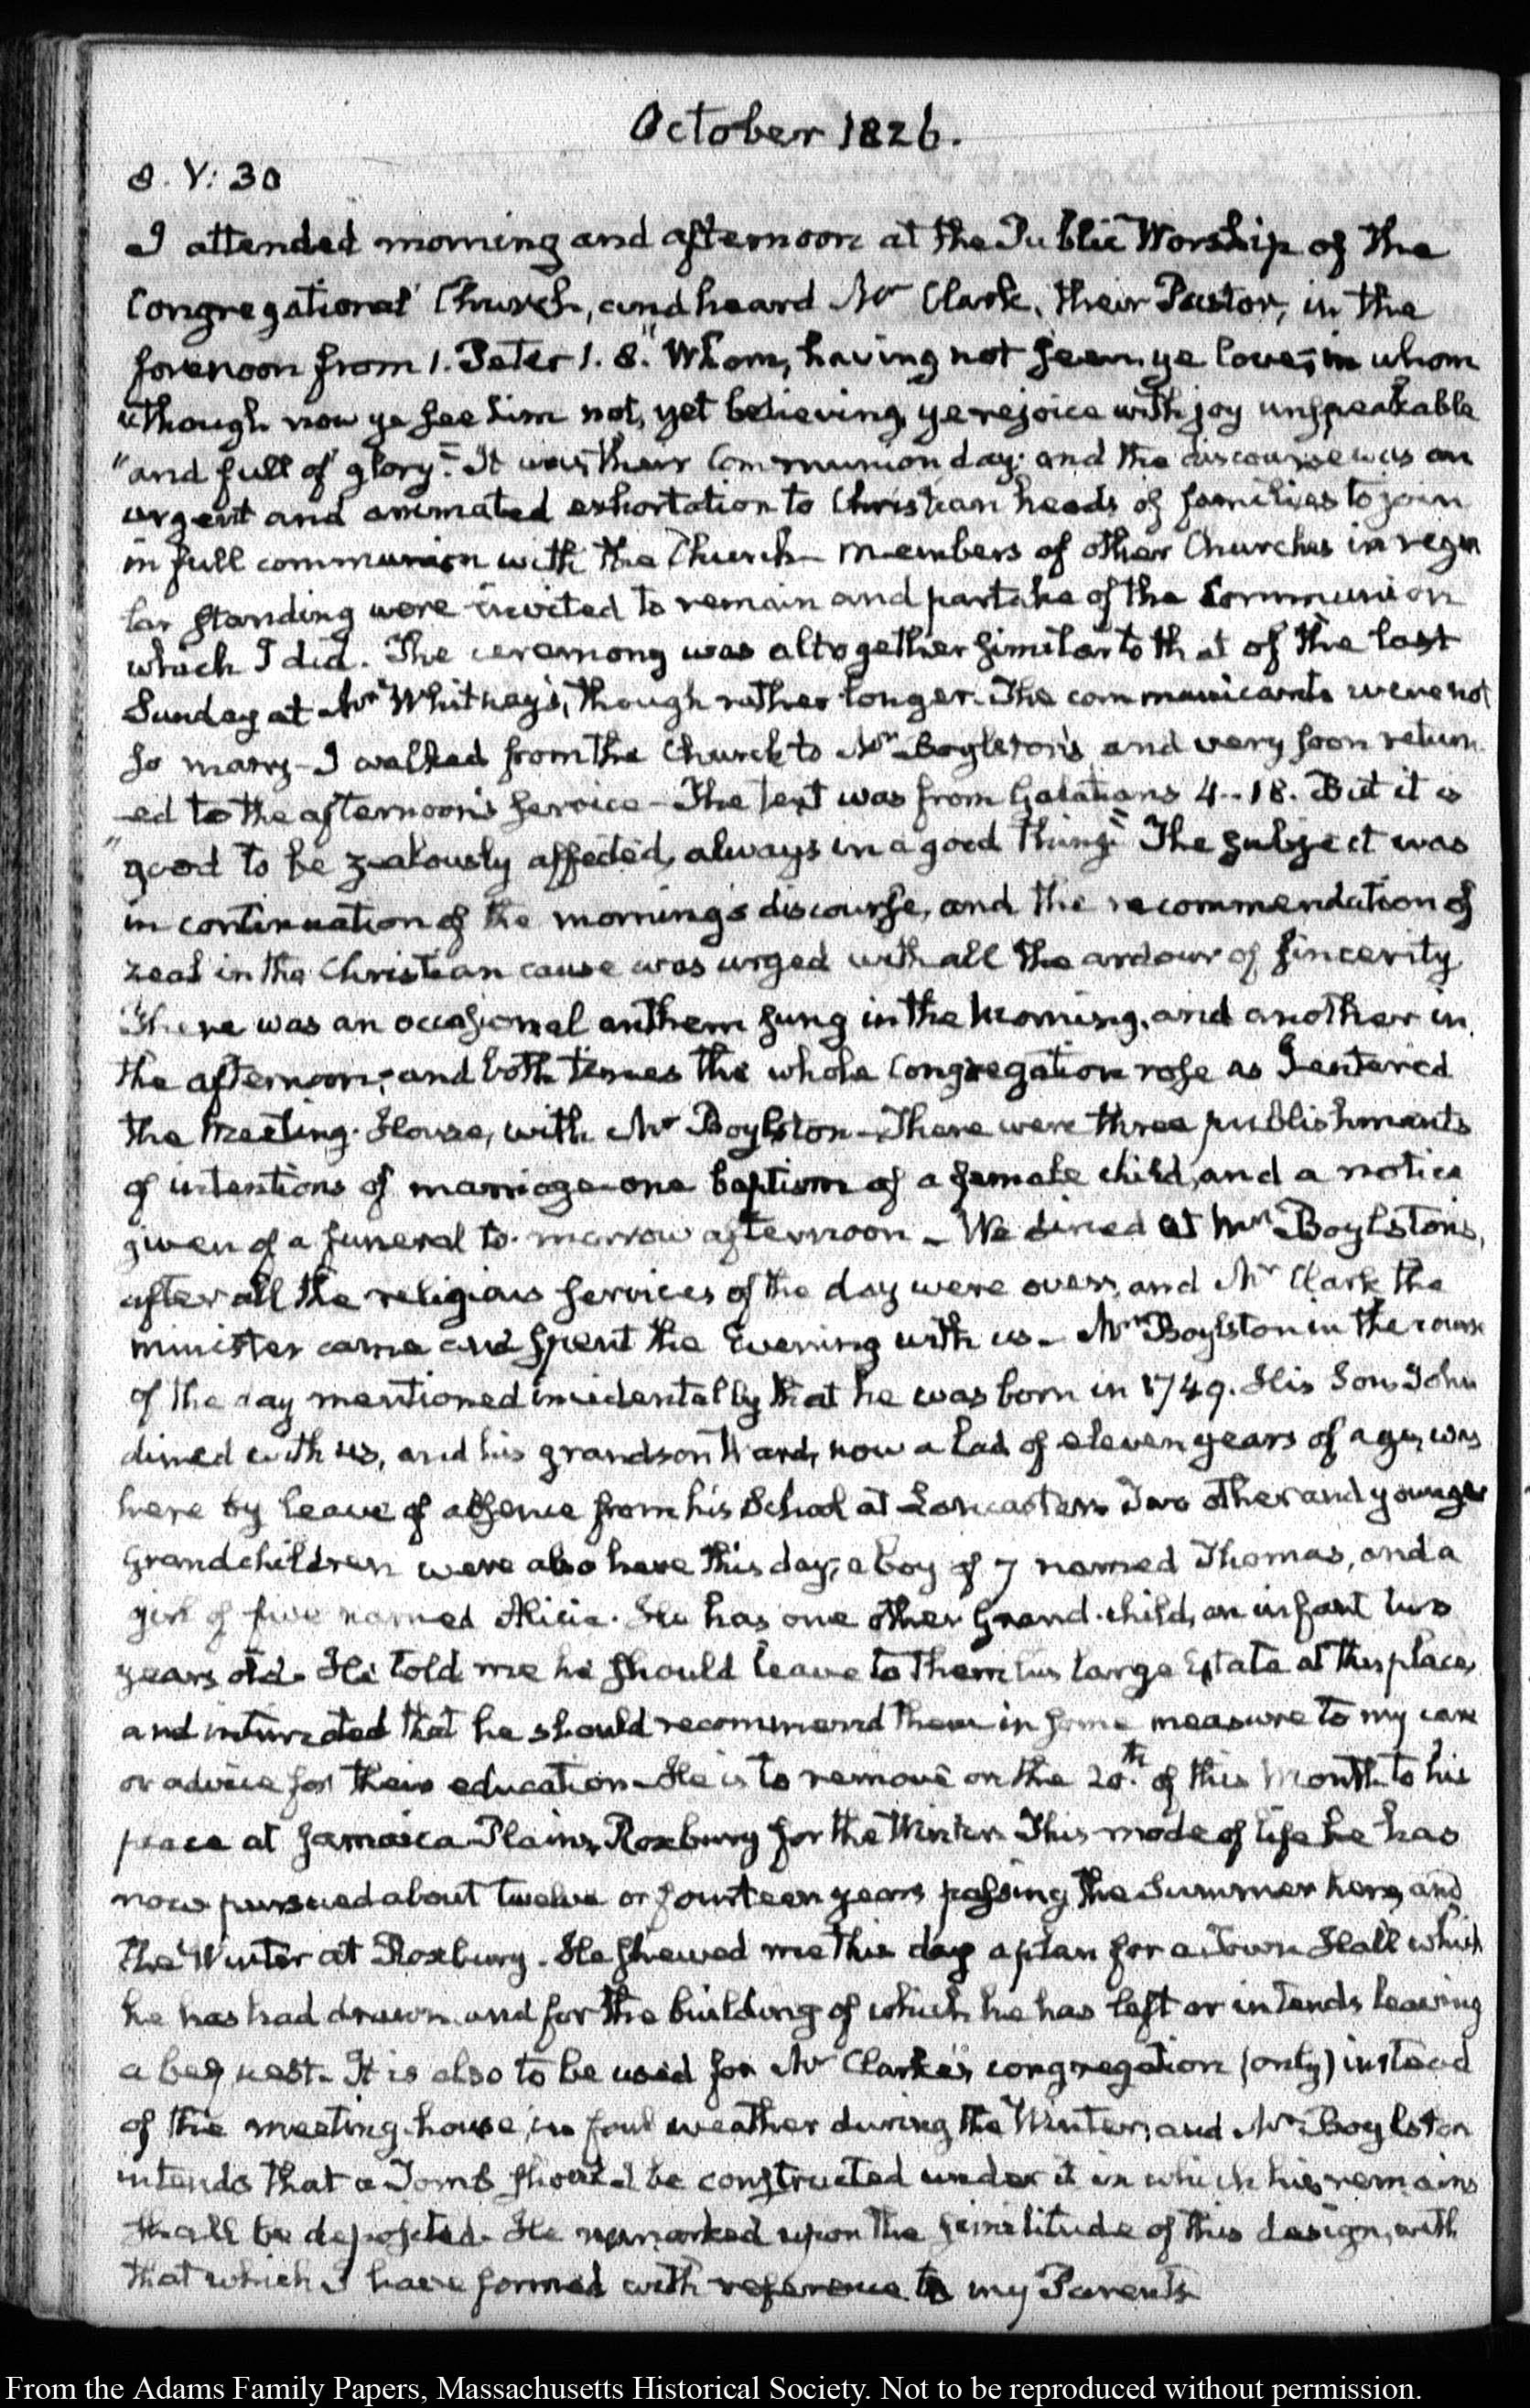 October 1826.
8. V: 30
I attended morning and afternoon at the Public Worship of the
Congregational Church, and heard Mr Clark, their Pastor, in the
forenoon from 1. Peter 1. 8. "Whom, having not seen, ye love; in whom
"though now ye see him not, yet believing, ye rejoice with joy unspeakable
"and full of glory." It was their Communion day; and the discourse was an
urgent and animated exhortation to Christian heads of families to join
in full communion with the Church - Members of other Churches in regu
lar standing were invited to remain and partake of the Communion
which I did. The ceremony was altogether similar to that of the last
Sunday at Mr Whitney's, though rather longer. The communicants were not
so many - I walked from the Church to Mr Boylston's and very soon return
-ed to the afternoon's service - The text was from Galatians 4 - 18. But it is
"good to be zealously affected, always in a good thing." The subject was
in continuation of the morning's discourse, and the recommendation of
zeal in the Christian cause was urged with all the ardour of sincerity.
There was an occasional anthem sung in the Morning, and another in
the afternoon; and both times the whole Congregation rose as I entered
the Meeting-House, with Mr Boylston - There were three publishments
of intentions of marriage - one baptism of a female child, and a notice
given of a funeral to-morrow afternoon - We dined at Mr Boylston's,
after all the religious services of the day were over, and Mr Clark the
minister came and spent the Evening with us - Mr Boylston in the course
of the day mentioned incidentally that he was born in 1749. His Son John
dined with us, and his grandson Ward, now a lad of eleven years of age, was
here by leave of absence from his School at Lancaster. Two other and younger
Grandchildren were also here this day; a boy of 7 named Thomas, and a
girl of five named Alicia. He has one other Grand-child, an infant two
years old. He told me he should leave to them his large Estate at this place,
and intimated that he should recommend them in some measure to my care
or advice for their education - He is to remove on the 20th. of this Month to his
place at Jamaica Plains, Roxbury for the Winter. This mode of life he has
now pursued about twelve or fourteen years passing the Summer here, and
the Winter at Roxbury. He shewed me this day a plan for a Town Hall which
he has had drawn and for the building of which he has left or intends leaving
a bequest. It is also to be used for Mr Clarke's congregation (only) instead
of the meeting-house, in foul weather during the Winter, and Mr Boylston
intends that a Tomb should be constructed under it in which his remains
shall be deposited. He remarked upon the similitude of this design, with
that which I have formed with reference to my Parents
From the Adams Family Papers, Massachusetts Historical Society. Not to be reproduced without permission.